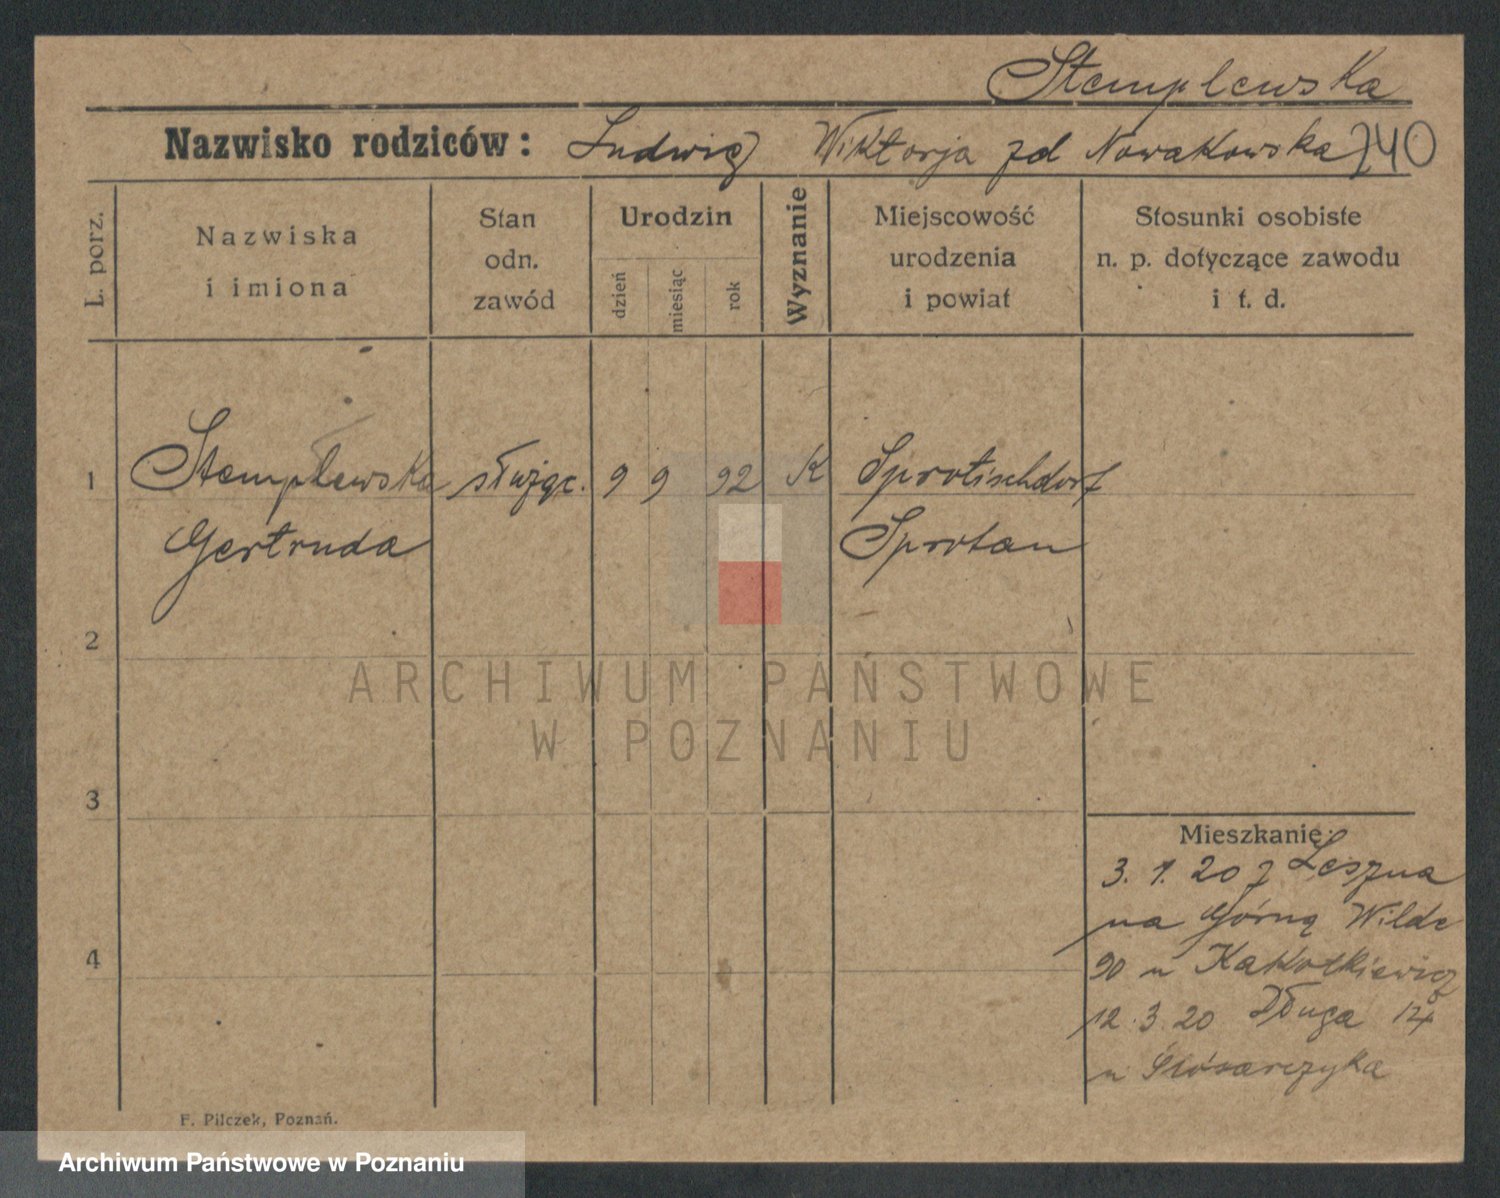 Stemplewska
Nazwisko rodziców: Ludwig Wiktorja zd Nowakowska 740
L. porz.
Nazwiska
i imiona
Stan
odn.
zawód
Urodzin
dzień
miesiąc
rok
Wyznanie
Miejscowość
urodzenia
i powiat
Stosunki osobiste
n. p. dotyczące zawodu
i t. d.
1 Stemplewska służąc. 9 9 92 K Sprottischdorf
Gertruda Sprotau
2
ARCHIWUM PAŃSTWOWE
W POZNANIU
3
Mieszkanie:
3. 1. 20 z Leszna
na Górną Wilde
4
90 u
12.3.20 Długa 14
u Ślósarczyka
F. Pilczek, Poznań.
Archiwum Państwowe w Poznaniu